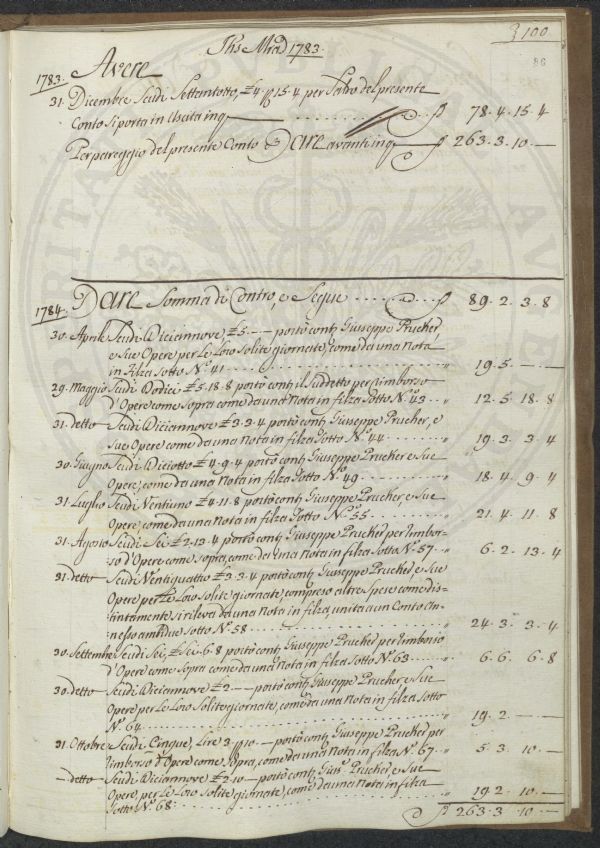 100
86
Jhs Mra 1783.
1783. Avere
31. Dicembre Scudi Settantotto, £4.15.4 per Saldo del presente
Conto si porta in Uscita inq — 78.4.15.4
Per pareggio del presente Conto Dare avanti inq — 263.3.10.—
1784. Dare Somma di Contro, e Segue 89.2.3.8
30. Aprile Scudi Diciannove, £5.—.— portò contj Giuseppe Prucher,
e Sue Opere per le Loro Solite giornate, come da una Nota
in Filza Sotto N.º 41 19.5.—.—
29. Maggio Scudi Dodici £5.18.8 portò contj il Sudetto per rimborso
d'Opere come sopra come da una Nota in filza Sotto N.º 43 12.5.18.8
31. detto Scudi Diciannove £3.3.4 portò contj Giuseppe Prucher, e
Sue Opere come da una Nota in filza Sotto N.º 44 19.3.3.4
30. Giugno Scudi Diciotto £4.9.4 portò contj Giuseppe Prucker e Sue
Opere, come da una Nota in filza Sotto N.º 49 18.4.9.4
31. Luglio Scudi Ventiuno £4.11.8 portò contj Giuseppe Prucher, e Sue
Opere, come da una Nota in filza Sotto N.º 55 21.4.11.8
31. Agosto Scudi Sei £2.13.4 portò contj Giuseppe Prucker per Rimbor-
so d'Opere come sopra, come da una Nota in filza Sotto N.º 57 6.2.13.4
31. detto Scudi Ventiquattro £3.3.4 portò contj Giuseppe Prucher, e Sue
Opere per le Loro Solite giornate, compreso altre Spese come dis-
tintamente si rileva da una Nota in filza, unita a un Conto an-
nesso ambidue Sotto N.º 58 24.3.3.4
30. Settembre Scudi Sei, £Sei.6.8 portò contj Giuseppe Prucher per Rimborso
d'Opere come Sopra come da una Nota in filza Sotto N.º 63 6.6.6.8
30. detto Scudi Diciannove £2.—.— portò contj Giuseppe Prucher, e Sue
Opere per le Loro Solite giornate, come da una Nota in filza Sotto
N.º 64 19.2.—.—
31. Ottobre Scudi Cinque, Lire 3.10.— portò contj Giuseppe Prucher per
Rimborso d'Opere come Sopra, come da una Nota in filza N.º 67 5.3.10.—
— detto Scudi Diciannove £2.10.— portò contj Gius.e Prucher, e Sue
Opere, per le Loro Solite giornate, come da una Nota in filza
Sotto N.º 68: 19.2.10.—
263.3.10.—